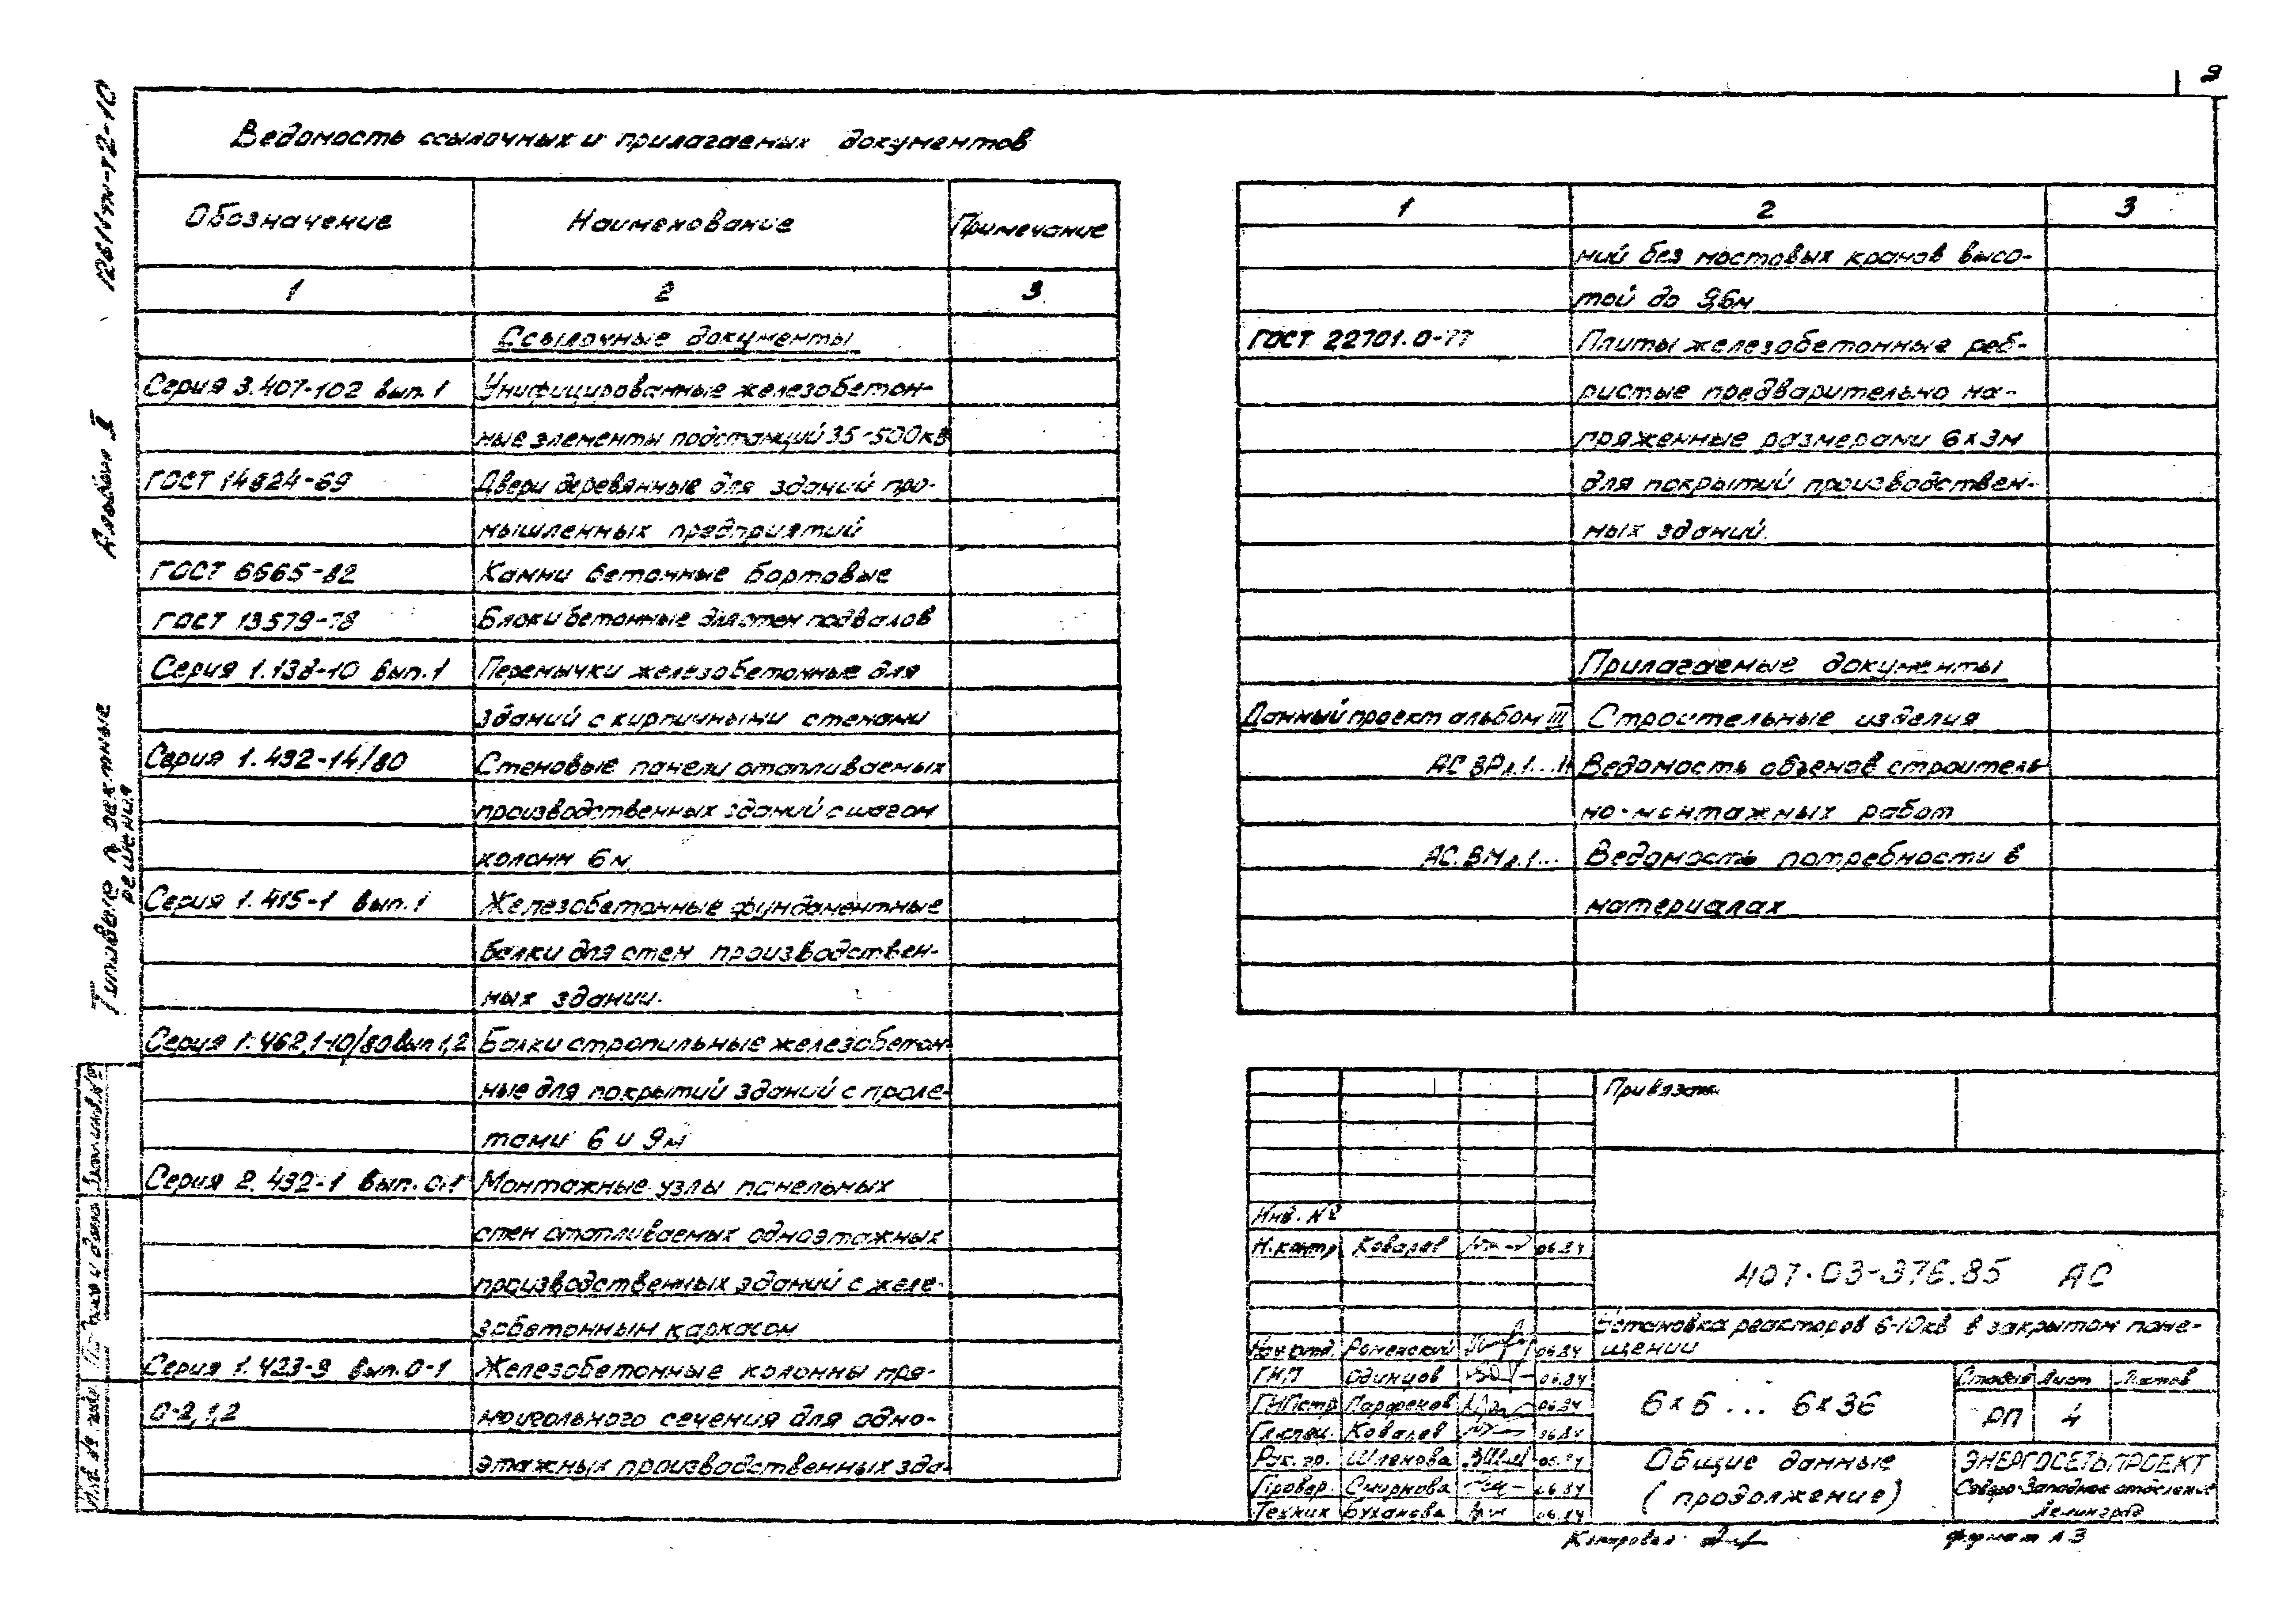 9
Ведомость ссылочных и прилагаемых документов
Обозначение Наименование Примечание
1 2 3
Ссылочные документы
Серия 3.407-102 вып. 1 Унифицированные железобетон-
ные элементы подстанций 35-500кВ
ГОСТ 14624-69 Двери деревянные для зданий про-
мышленных предприятий
ГОСТ 6665-82 Камни бетонные бортовые
ГОСТ 13579-78 Блоки бетонные для стен подвалов
Серия 1.138-10 вып. 1 Перемычки железобетонные для
зданий с кирпичными стенами
Серия 1.432-14/80 Стеновые панели отапливаемых
производственных зданий с шагом
колонн 6м
Серия 1.415-1 вып. 1 Железобетонные фундаментные
балки для стен производствен-
ных здании.
Серия 1.462.1-10/80 вып 1,2 Балки стропильные железобетон-
ные для покрытий зданий с проле-
тами 6 и 9м
Серия 2.432-1 вып. 0,1 Монтажные узлы панельных
стен отапливаемых одноэтажных
производственных зданий с желе-
зобетонным каркасом
Серия 1.423-3 вып. 0-1 Железобетонные колонны пря-
0-2, 1,2 моугольного сечения для одно-
этажных производственных зда-
1 2 3
ний без мостовых кранов высо-
той до 9,6м
ГОСТ 22701.0-77 Плиты железобетонные реб-
ристые предварительно на-
пряженные размерами 6х3м
для покрытий производствен-
ных зданий.
Прилагаемые документы
Данный проект альбом III Строительные изделия
АС.ВР л.1... Ведомость объемов строитель
но-монтажных работ
АС.ВМ л.1... Ведомость потребности в
материалах
Привязан
Инв. №
Н.контр. Ковалев 06.84
407-03-376.85 АС
Установка реакторов 6-10кв в закрытом поме-
щении
Нач.отд. Роменский 06.84
ГИП Одинцов 06.84
ГИПстр Парфенов 06.84
Гл.спец. Ковалев 06.84
Рук. гр. Шленова 06.84
Провер. Смирнова 06.84
Техник Буханова 06.84
6х6 ... 6х36
Стадия Лист Листов
РП 4
Общие данные
(продолжение)
ЭНЕРГОСЕТЬПРОЕКТ
Северо-Западное отделение
Ленинград
Копировал: формат А3
Типовые проектные
решения
Альбом II
Инв. № подл. Подпись и дата Взам.инв.№